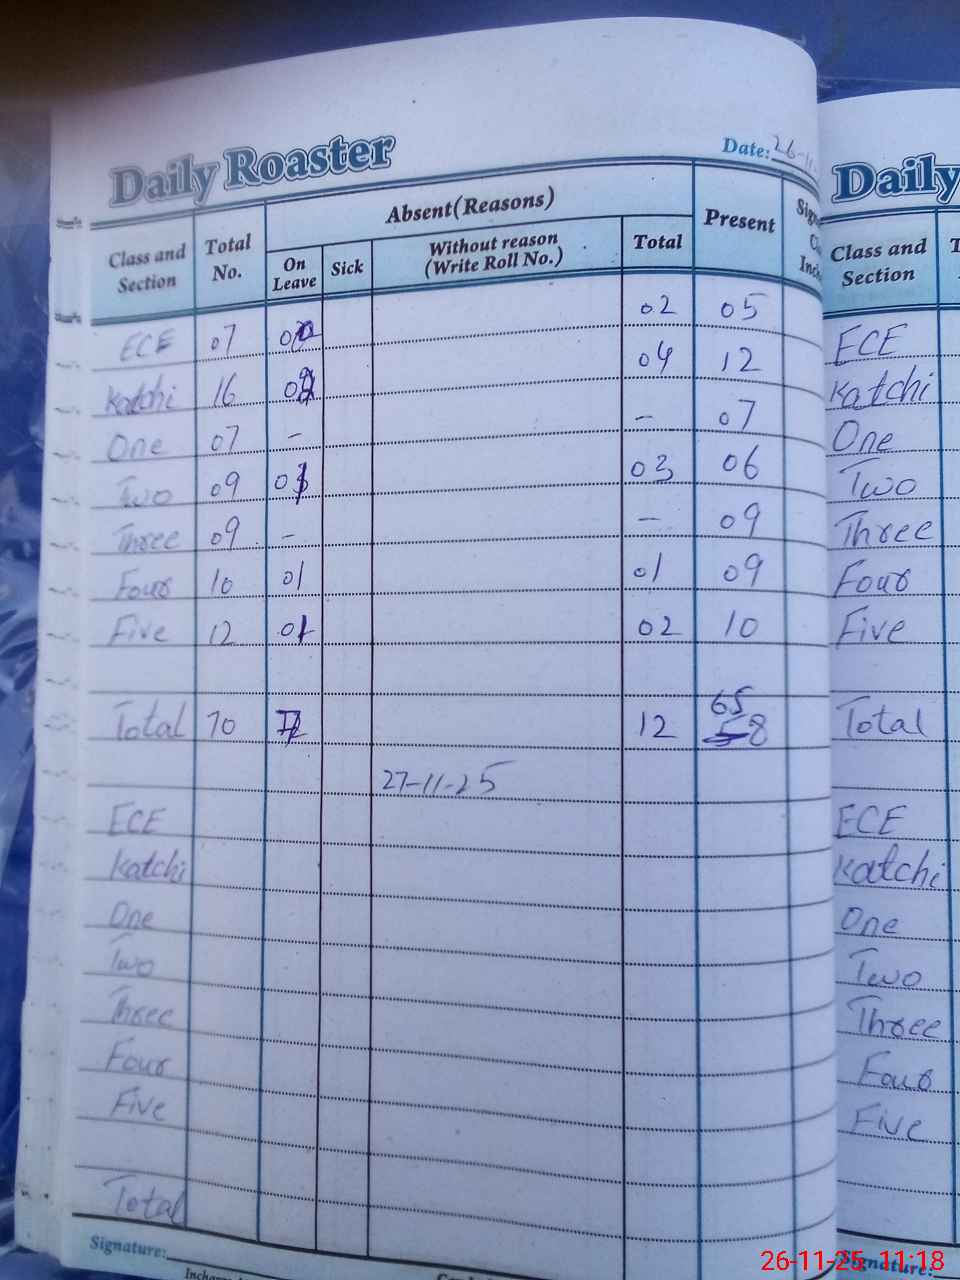 Daily Roaster
Date: 26-11
Class and Section Total No. Absent(Reasons) Present
On Leave Sick Without reason (Write Roll No.) Total
ECE 07 02 05
Katchi 16 04 12
One 07 – – 07
Two 09 03 06
Three 09 – – 09
Four 10 01 01 09
Five 12 02 10
Total 70 12 65 58
27-11-25
ECE
Katchi
One
Two
Three
Four
Five
Total
Signature:
Daily
Class and Section
ECE
Katchi
One
Two
Three
Four
Five
Total
ECE
Katchi
One
Two
Three
Four
Five
Signature:
26-11-25 11:18